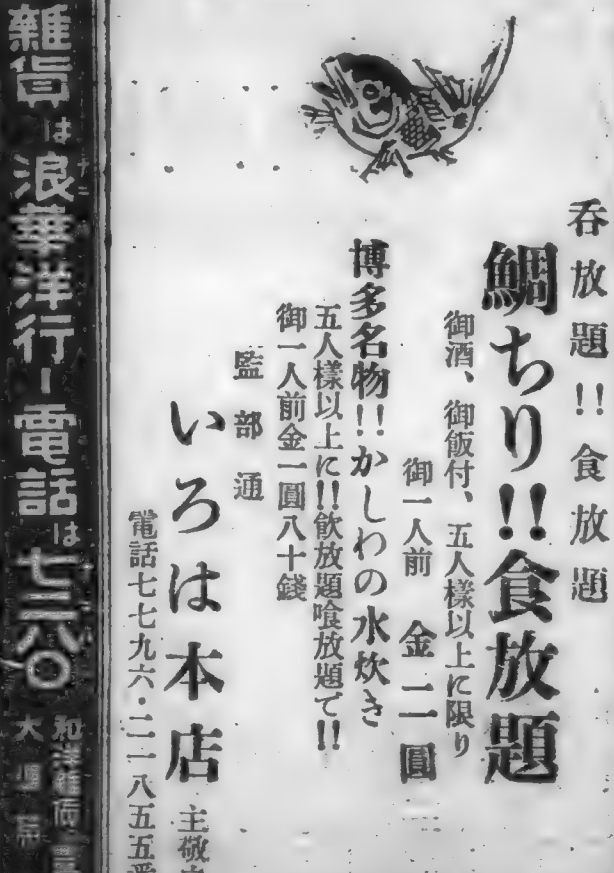 呑放題!!食放題
鯛ちり!!食放題
御酒、御飯付、五人樣以上に限り
御一人前 金二圓
博多名物!!かしわの水炊き
五人樣以上に!!飲放題喰放題で!!
御一人前金一圓八十錢
監部通
いろは本店 主敬
電話七七九六・二一八五五番
雜貨は浪華洋行ー電話は七二八〇
和洋雜貨